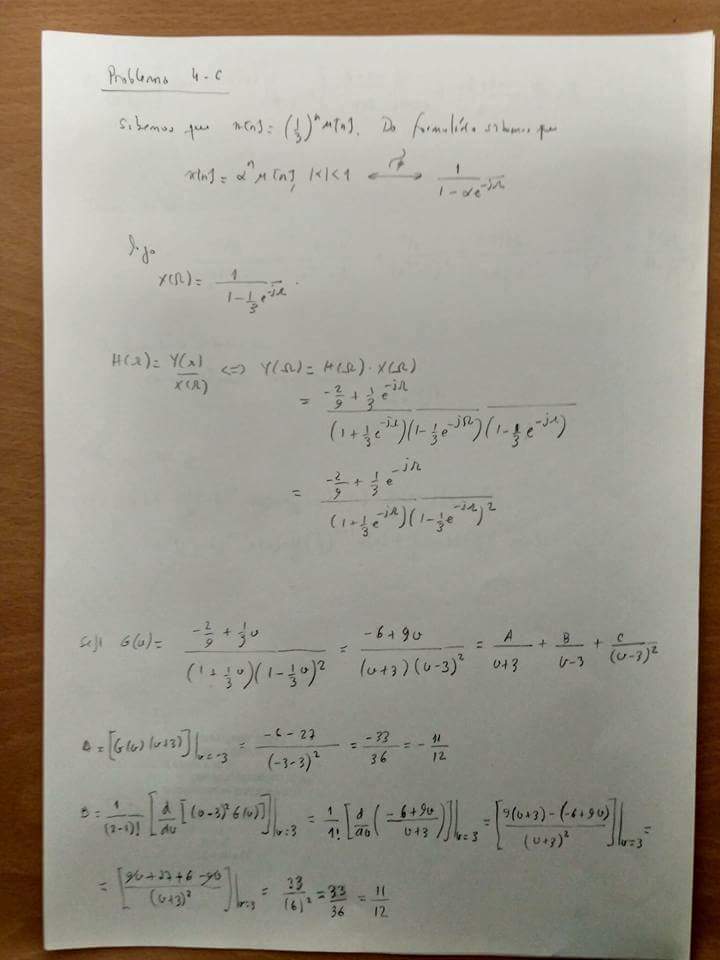 Problema 4-c
Sabemos que x[n] = (1/3)^n u[n]. Do formulário sabemos que
x[n] = α^n u[n], |α|<1 ⟷ 1/(1 - αe^{-jΩ})
logo
X(Ω) = 1/(1 - 1/3 e^{-jΩ}).
H(Ω) = Y(Ω)/X(Ω) <=> Y(Ω) = H(Ω) · X(Ω)
= (-2/9 + 1/3 e^{-jΩ})/((1 + 1/3 e^{-jΩ})(1 - 1/3 e^{-jΩ})(1 - 1/3 e^{-jΩ}))
= (-2/9 + 1/3 e^{-jΩ})/((1 + 1/3 e^{-jΩ})(1 - 1/3 e^{-jΩ})^2)
Seja G(v) = (-2/9 + 1/3 v)/((1 + 1/3 v)(1 - 1/3 v)^2) = (-6 + 9v)/((v+3)(v-3)^2) = A/(v+3) + B/(v-3) + C/(v-3)^2
A = [G(v)(v+3)]|_{v=-3} = (-6 - 27)/(-3-3)^2 = -33/36 = -11/12
B = 1/(2-1)! [d/dv [(v-3)^2 G(v)]]|_{v=3} = 1/1! [d/dv ((-6+9v)/(v+3))]|_{v=3} = [(9(v+3) - (-6+9v))/(v+3)^2]|_{v=3} =
= [(9v + 27 + 6 - 9v)/(v+3)^2]|_{v=3} = 33/(6)^2 = 33/36 = 11/12